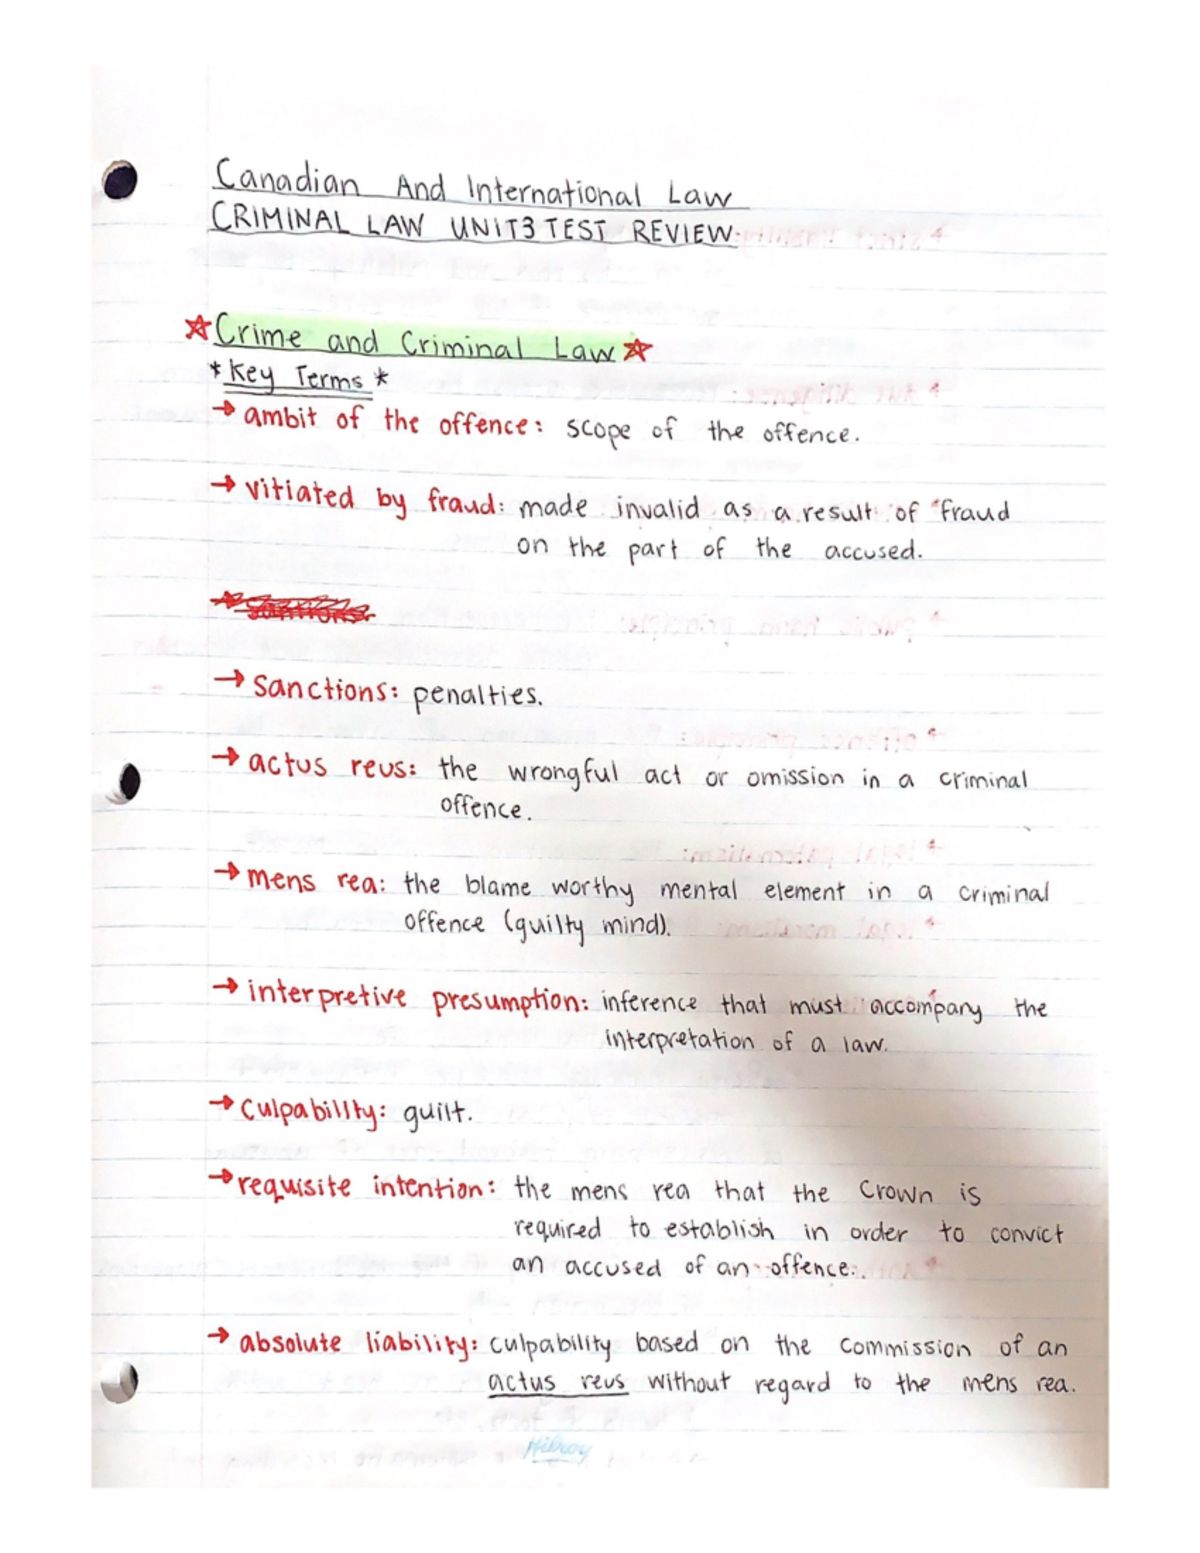 Canadian And International Law
CRIMINAL LAW UNIT3 TEST REVIEW
Crime and Criminal Law
*Key Terms*
→ ambit of the offence: scope of the offence.
→ vitiated by fraud: made invalid as a result of fraud
on the part of the accused.
→ Sanctions: penalties.
→ actus reus: the wrongful act or omission in a criminal
offence.
→ mens rea: the blame worthy mental element in a criminal
offence (guilty mind).
→ interpretive presumption: inference that must accompany the
interpretation of a law.
→ Culpability: guilt.
→ requisite intention: the mens rea that the Crown is
required to establish in order to convict
an accused of an offence.
→ absolute liability: culpability based on the commission of an
actus reus without regard to the mens rea.
Hilroy